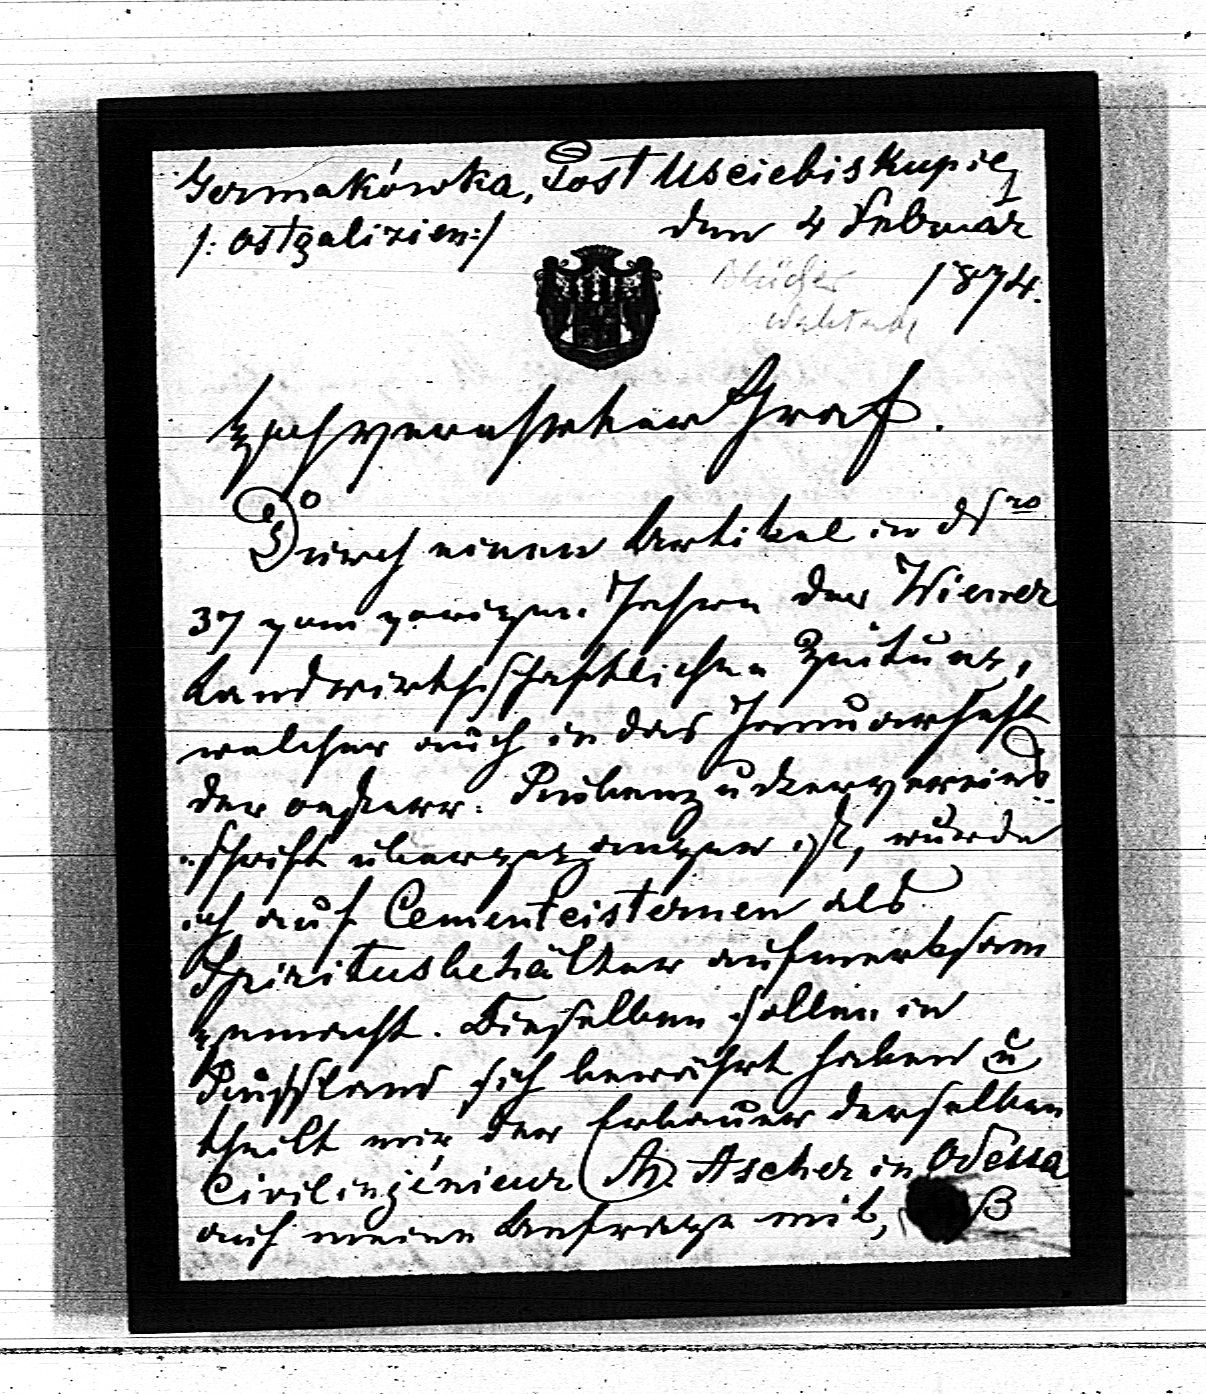 Germakówka, Post Usciebiskupie
/: Ostgalizien :/ den 4 Februar
1874.
Hochverehrter Graf.
Durch einen Artikel in No
37 vom vorigen Jahre der Wiener
Landwirthschaftlichen Zeitung,
welcher auch in das Januarheft
der oesterr. Rübenzuckervereins
schrift übergegangen ist, wurde
ich auf Cementcisternen als
Spiritusbehälter aufmerksam
gemacht. Dieselben sollen in
Russland sich bewährt haben u
theilt mir der Erbauer derselben
Civilingénieur Ascher in Odessa
auf meine Anfrage mit,